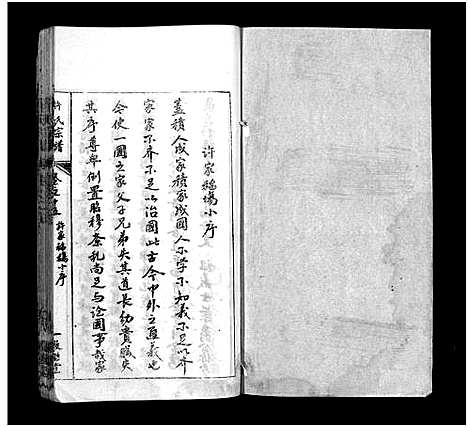 許家福塲小序
蓋積人成家積家成國人不學不知義不足以齊
家家不齊不足以治國此古今中外之通義也
令使一國之家父子兄弟失其道長幼貴賤失
其序尊卑倒置昭穆紊亂尚足与論國事我家
許氏宗譜
許家福塲小序